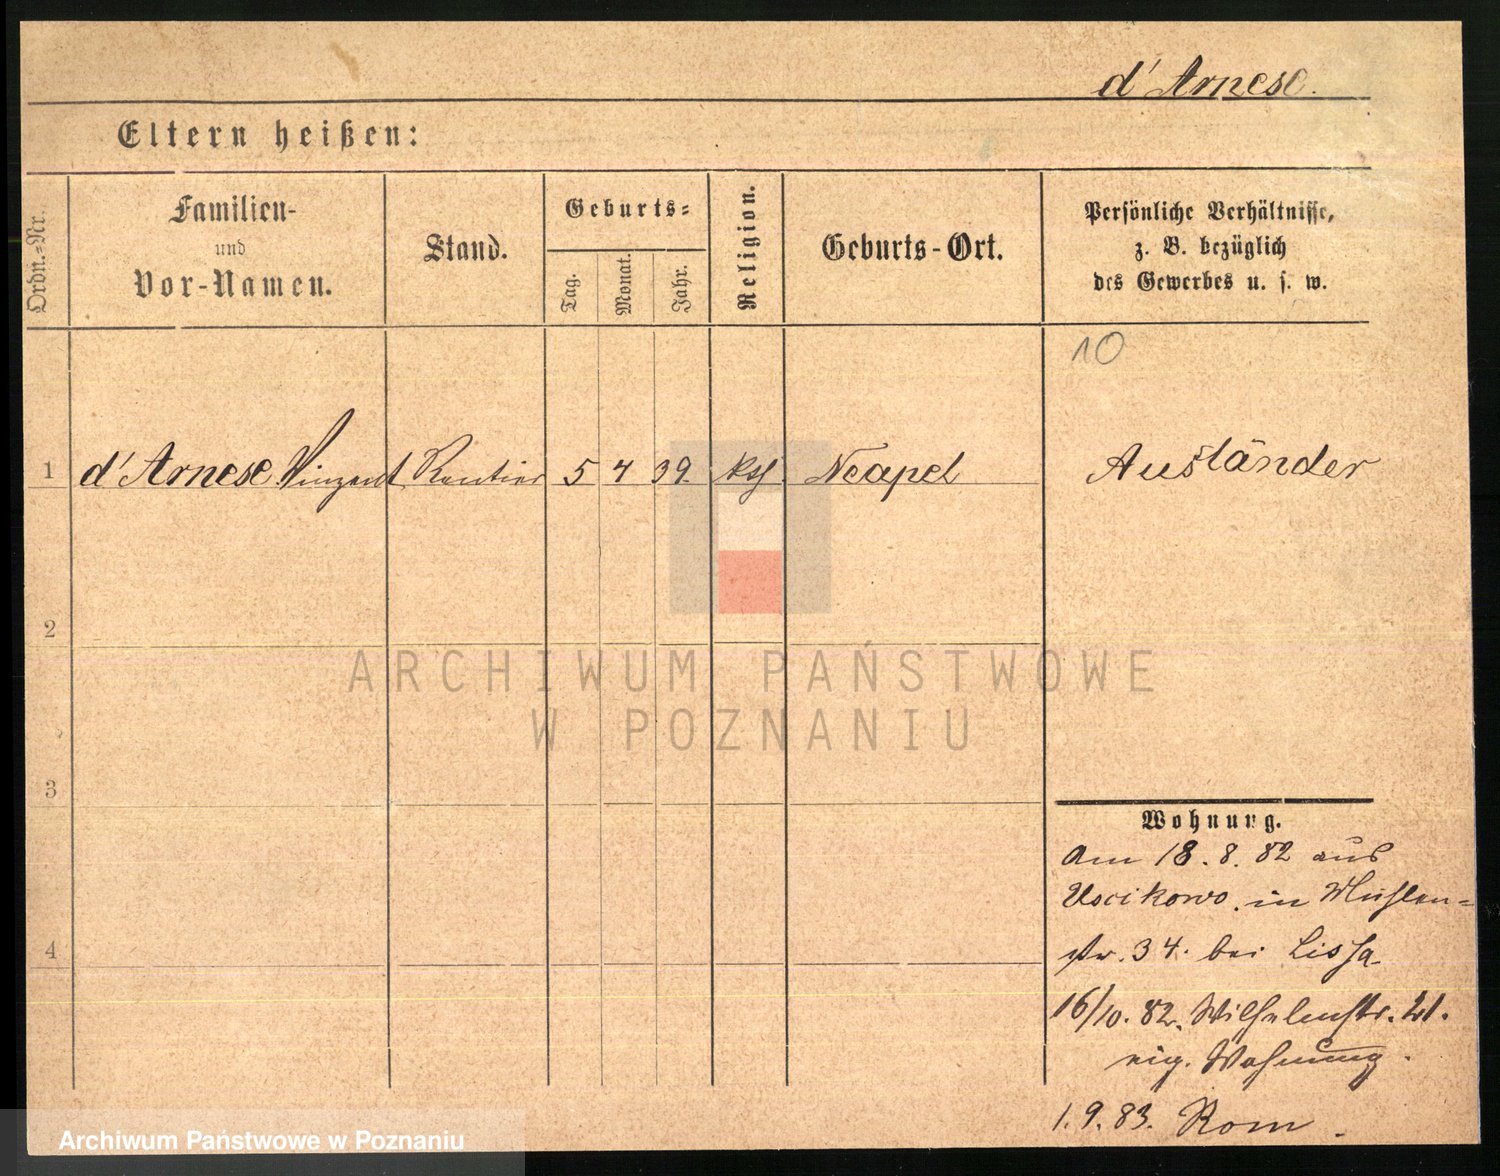 d' Arnese.
Eltern heißen:
Ordn.=Nr.
Familien-
und
Vor-Namen.
Stand.
Geburts=
Tag.
Monat.
Jahr.
Religion.
Geburts-Ort.
Persönliche Verhältnisse,
z. B. bezüglich
des Gewerbes u. s. w.
10
1 d' Arnese Vinzent Rentier 5 4 39. kth Neapel Ausländer
2
3
4
ARCHIWUM PAŃSTWOWE
W POZNANIU
Wohnung.
Am 18. 8. 82 aus
Uscikowo in Mühlen=
str. 34. bei Lissa
16/10. 82. Wilhelmstr. 21.
eig. Wohnung.
1. 9. 83. Rom.
Archiwum Państwowe w Poznaniu